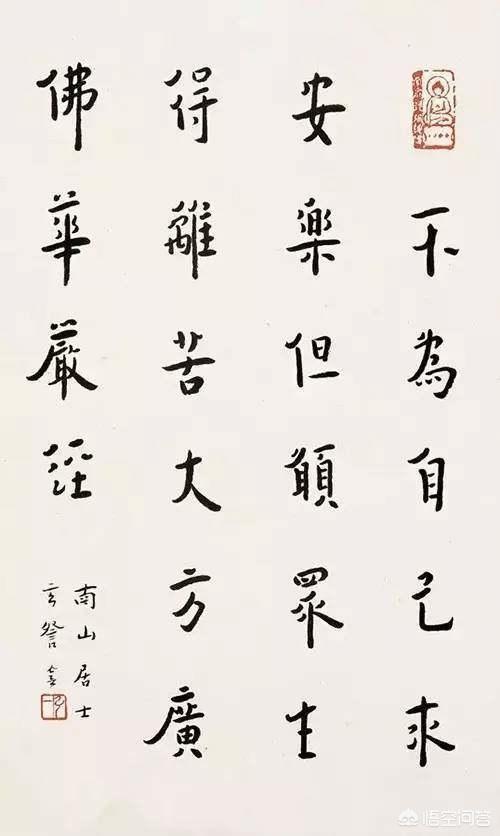 不为自己求
安樂但願眾生
得離苦大方廣
佛華嚴經
南山居士
玄詧書
悟空问答